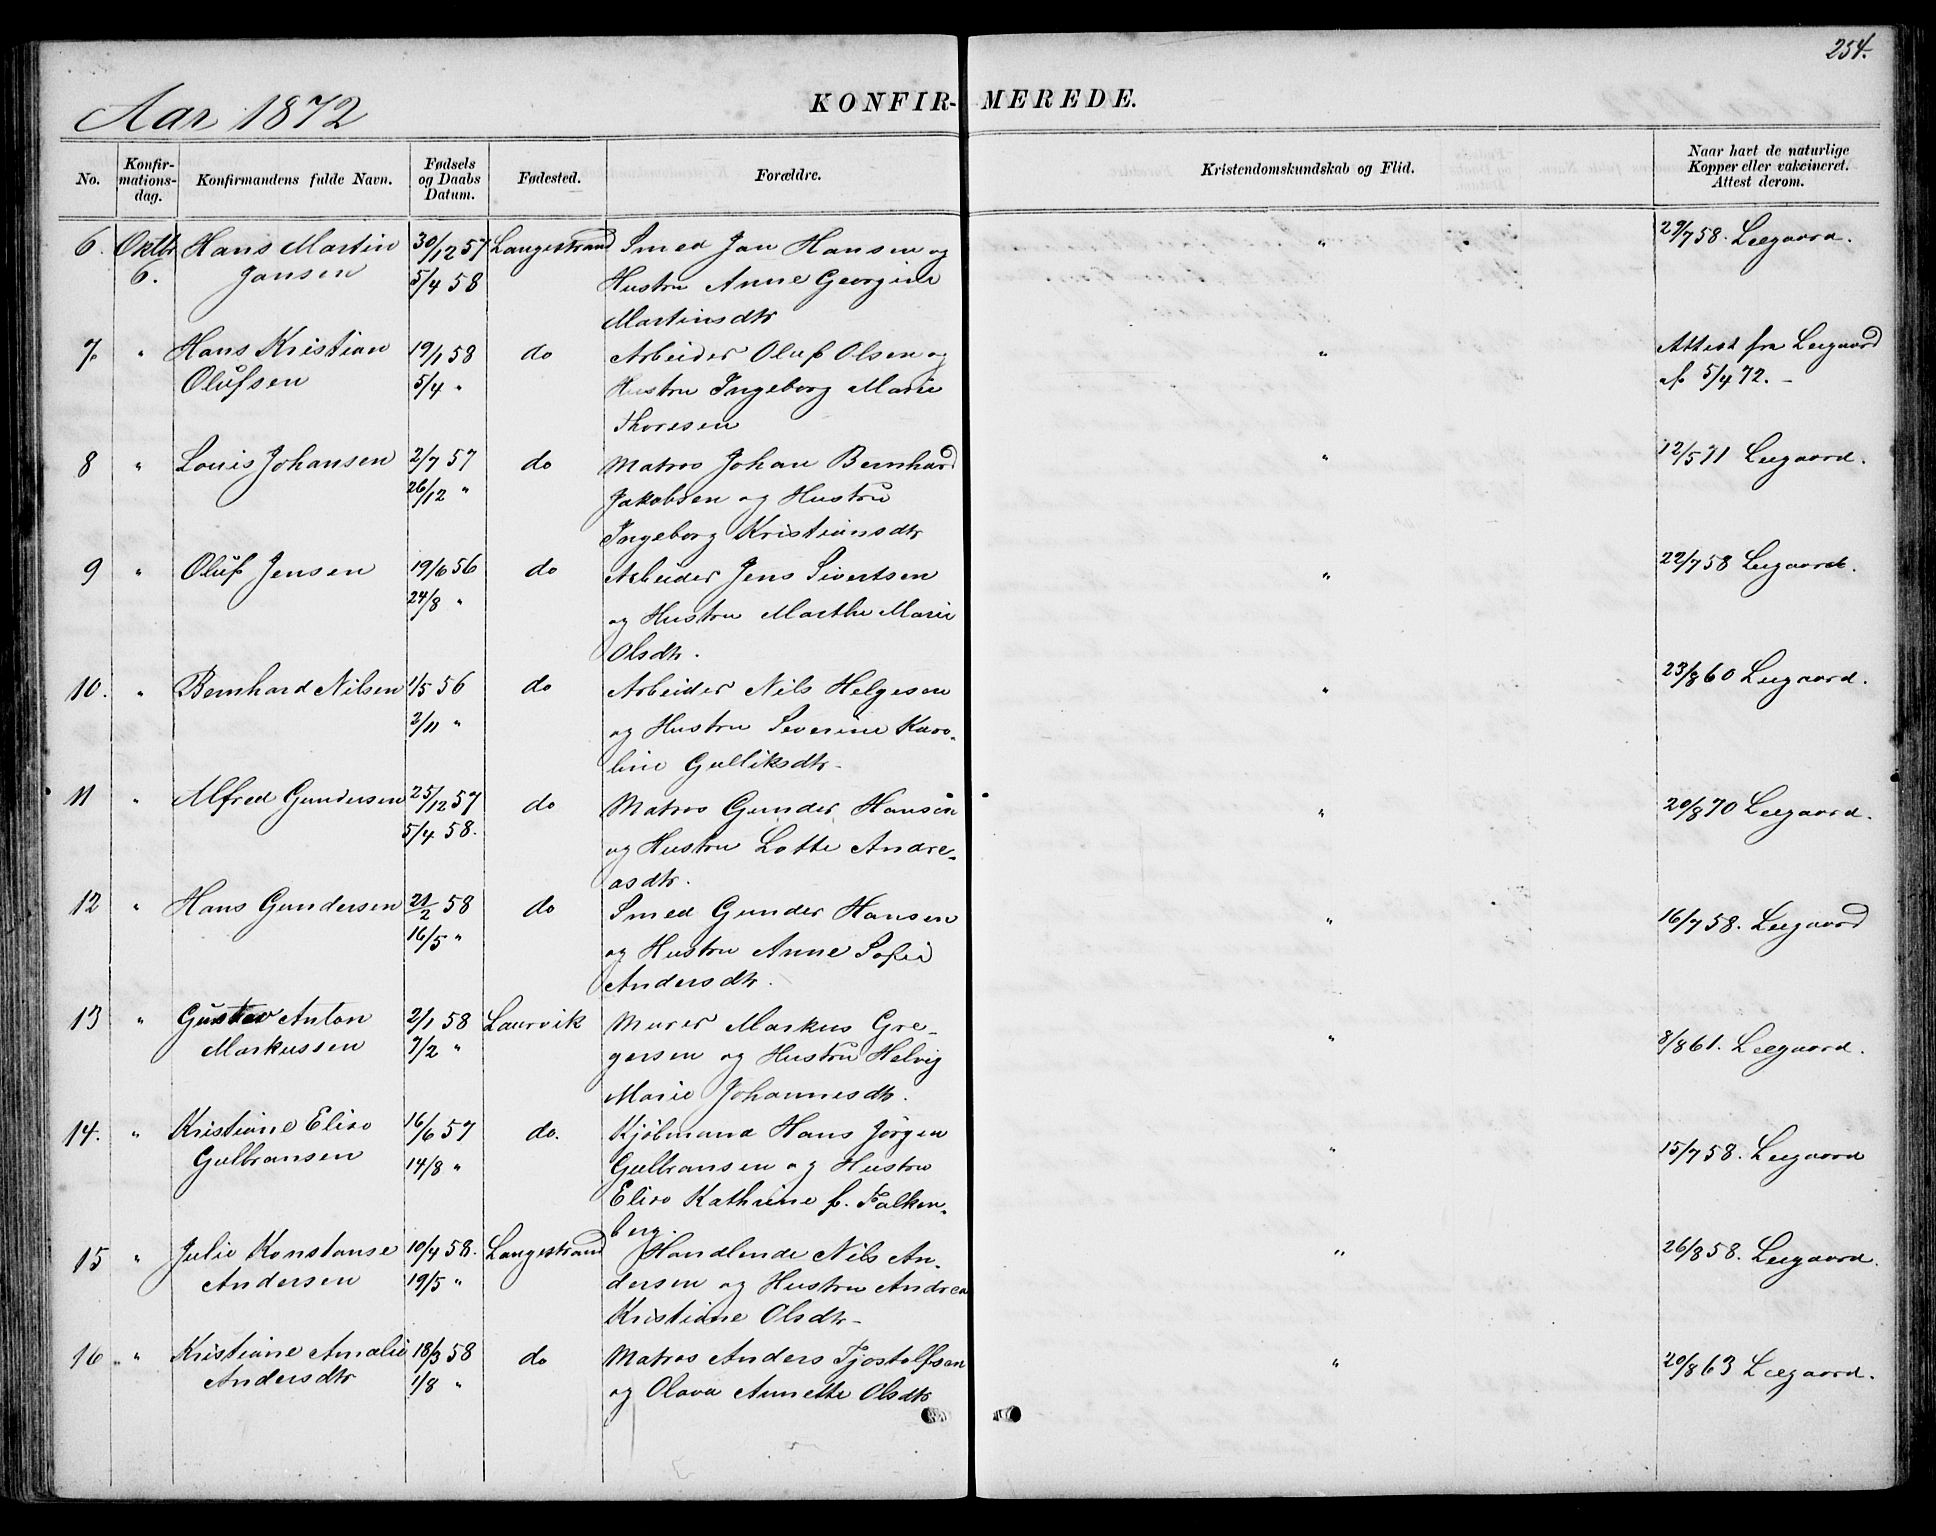 254.
Aar 1872
KONFIR- MEREDE.
No.
Konfir-
mations-
dag.
Konfirmandens fulde Navn.
Fødsels
og Daabs
Datum.
Fødested.
Forældre.
Kristendomskundskab og Flid.
Naar havt de naturlige
Kopper eller vakcineret.
Attest derom.
6. Oktbr Hans Martin 30/12 57 Langestrand Smed Jan Hansen og " 29/7 58. Leegaard.
6. Jansen 5/4 58 Hustru Anne Georgine
Martinsdtr
7. " Hans Kristian 19/1 58 do Arbeider Oluf Olsen og " Attest fra Leegaard
Olufsen 5/4 " Hustru Ingeborg Marie af 5/4 72. -
Thoresen
8 " Louis Johansen 2/7 57 do Matros Johan Bernhard " 12/5 71 Leegaard.
26/12 " Jakobsen og Hustru
Ingeborg Kristiansdtr
9 " Oluf Jensen 19/6 56 do Arbeider Jens Sivertsen " 22/7 58 Leegaard.
24/8 " og Hustru Marthe Marie
Olsdtr.
10. " Bernhard Nilsen 1/5 56 do Arbeider Nils Helgesen " 23/8 60 Leegaard.
2/11 " og Hustru Severine Karo-
line Gulliksdtr-
11 " Alfred Gundersen 25/12 57 do Matros Gunder Hansen " 20/8 70 Leegaard.
5/4 58. og Hustru Lotte Andre-
asdtr.
12 " Hans Gundersen 21/2 58 do Smed Gunder Hansen " 16/7 58. Leegaard
16/5 " og Hustru Anne Sofie
Andersdtr.
13 " Gustav Anton 2/1 58 Laurvik Murer Markus Gre- " 8/8 61. Leegaard.
Markussen 7/2 " gersen og Hustru Helvig
Marie Johannesdtr.
14. " Kristiane Elise 16/6 57 do. Kjöbmand Hans Jörgen " 15/7 58. Leegaard
Gulbransen 14/8 " Gulbransen og Hustru
Elise Kathrine f. Falken-
berg.
15 " Julie Konstanse 10/4 58. Langestrand Handlende Nils An- " 26/8 58. Leegaard.
Andersen 19/5 " dersen og Hustru Andrea
Kristiane Olsdtr-
16. " Kristiane Amalie 18/3 58 do Matros Anders Tjostolfsen " 20/8 63 Leegaard.
Andersdtr 1/8 " og Olava Annette Olsdtr